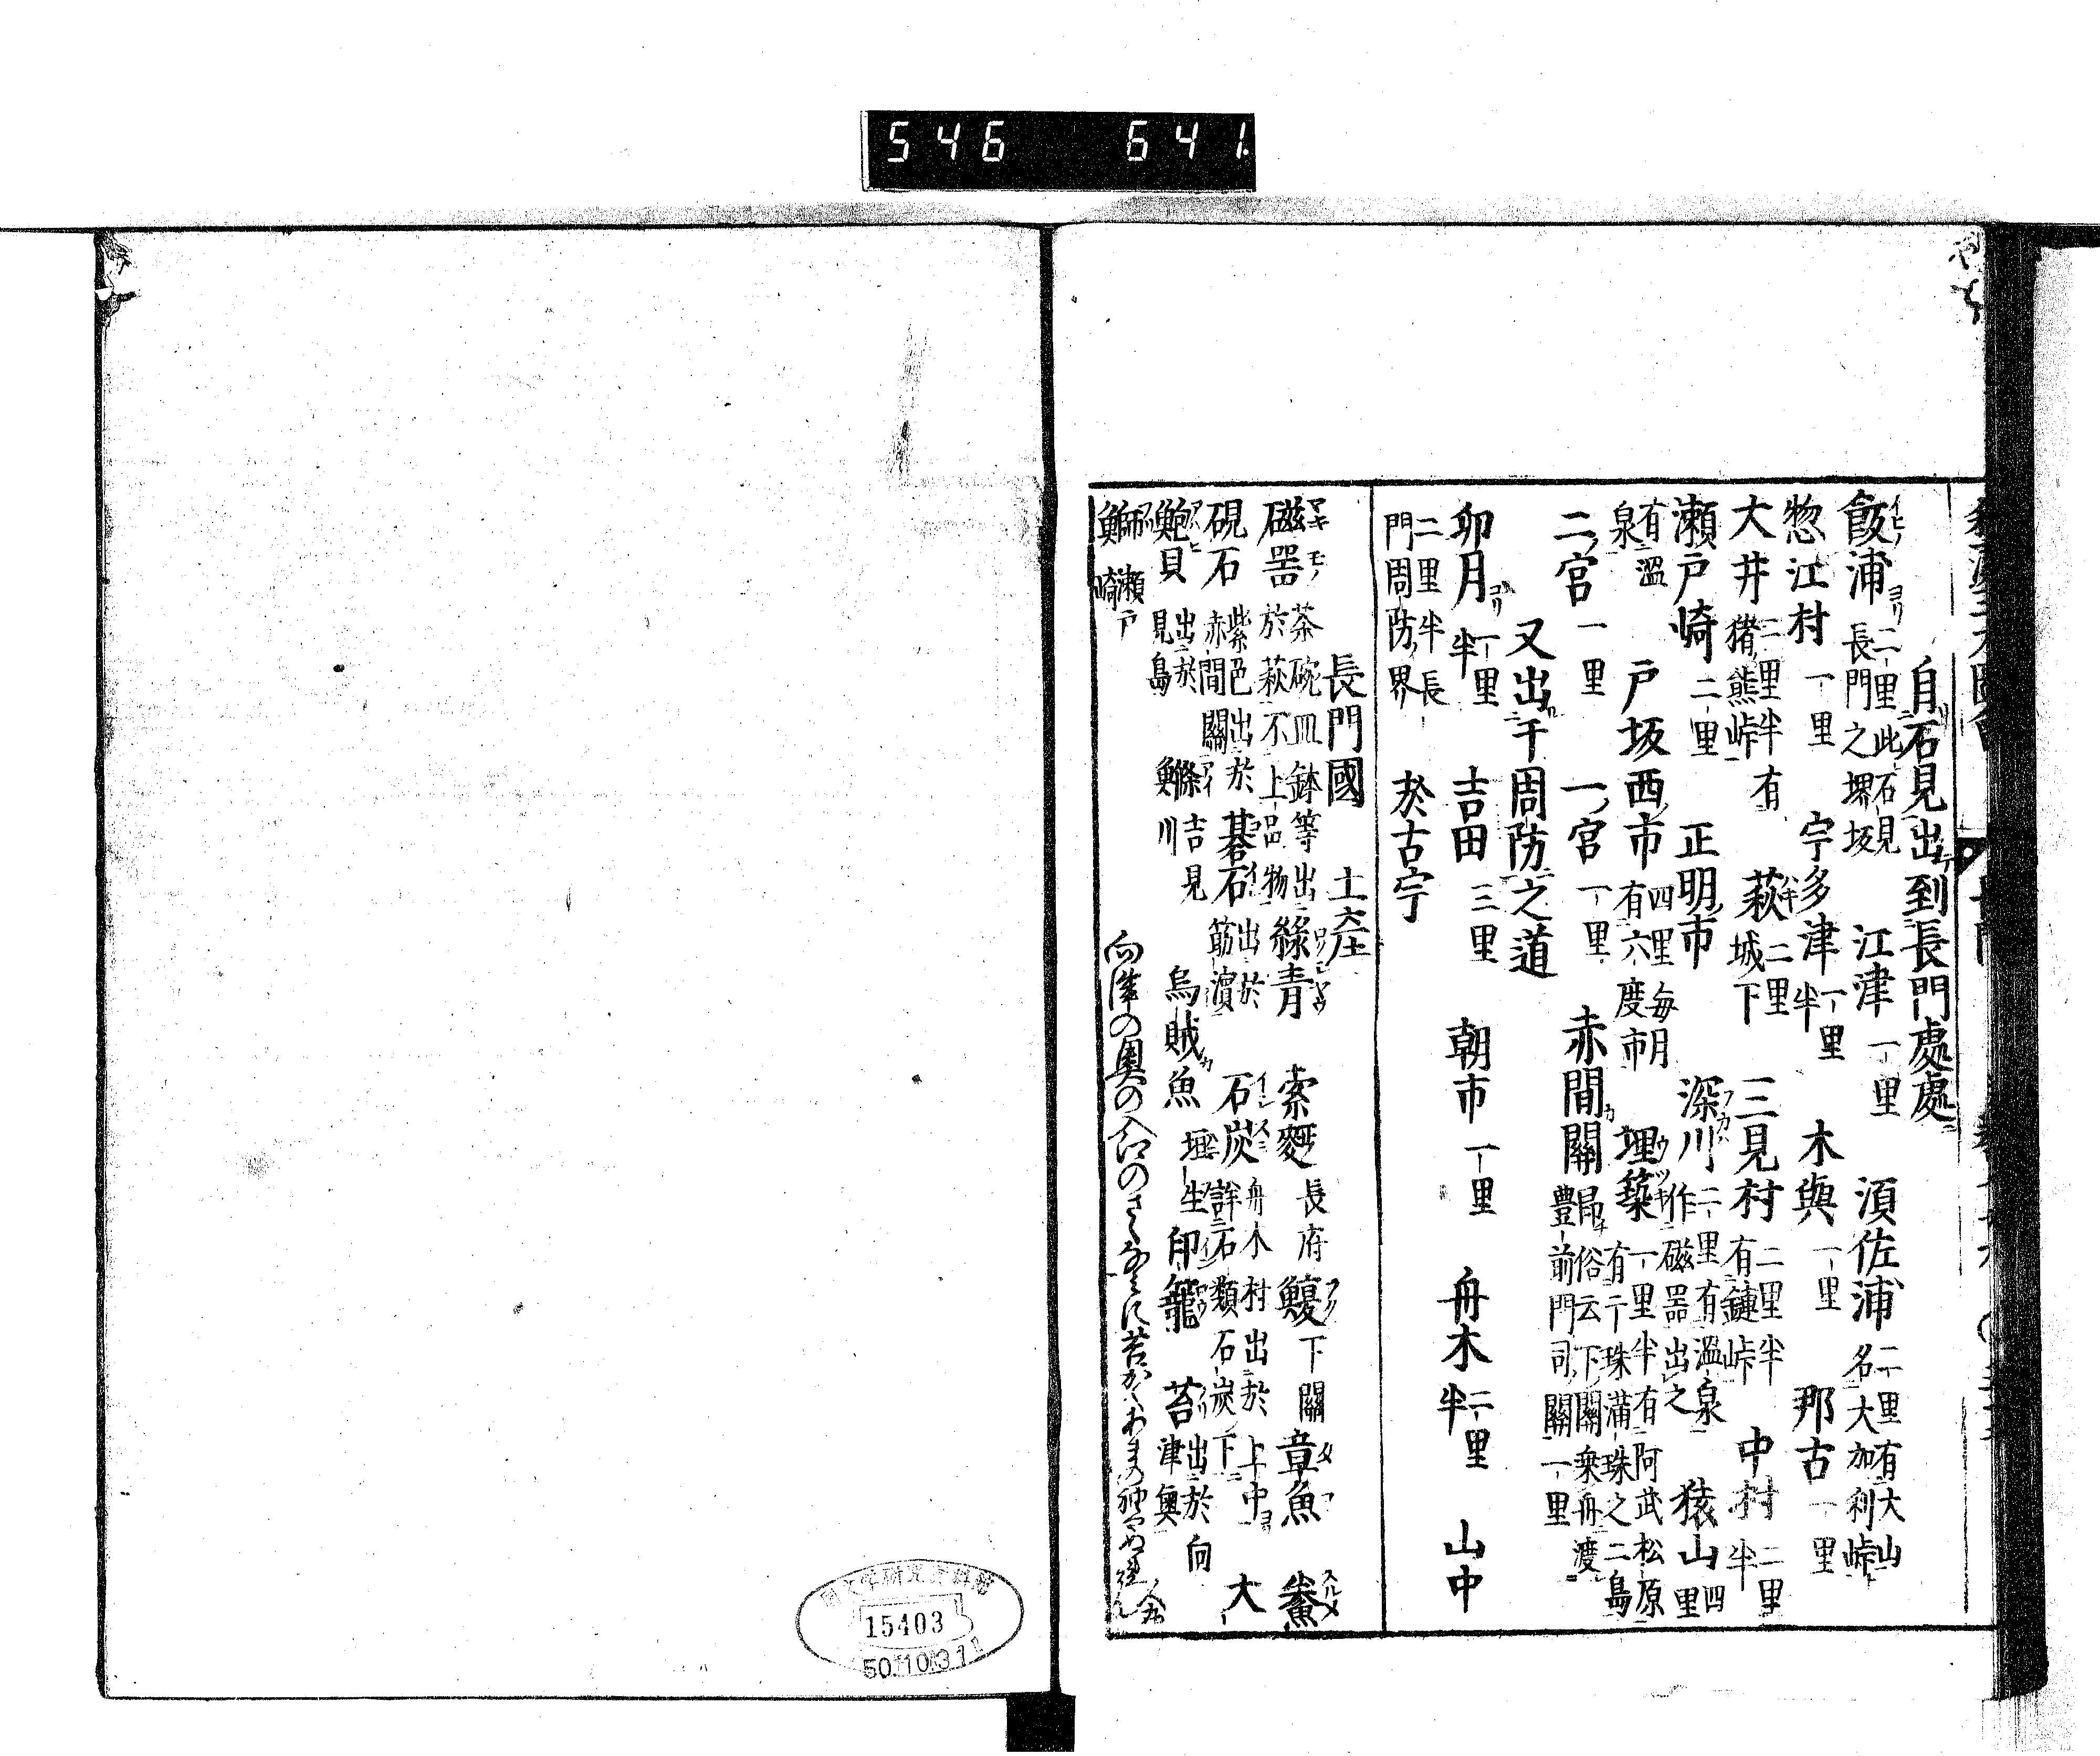 546 641
自石見出到長門處處
飯浦ヨリ 二里此石見長門之堺坂 江津 一里 須佐浦 二里有大山名大加利峠
惣江村 一里 宇多津 一里半 木與 一里 那古 一里
大井 二里半有猪熊峠 萩 二里城下 三見村 二里半有鏈峠 中村 二里半
瀬戸崎 二里 正明市 深川 二里有溫泉作磁器出之 猿山 四里
有溫泉 戸坂西市 四里每月有六度市 埋築 一里半有阿武松原有干珠滿珠之二島
二宮 一里 一宮 一里 赤間關 俗云下關乗舟渡豊前門司關一里
又出于周防之道
卯月ヨリ 一里半 吉田 三里 朝市 一里 舟木 二里半 山中
二里半長門周防界 於古宇
長門國 土産
磁器 茶碗皿鉢等出於萩不上品物 綠青 索麪 長府 鰒 下關 章魚 鯗
硯石 紫色出於赤間關 碁石 出於筋濵 石炭 舟木村出於上中下詳石類石炭下 大
鮑貝 出於見島 鰷 吉見川 烏賊魚 埴生 印籠 苔 出於向津奧
鰤 瀬戸崎
向津の奥の入江のさゝ
15403
50.10.31